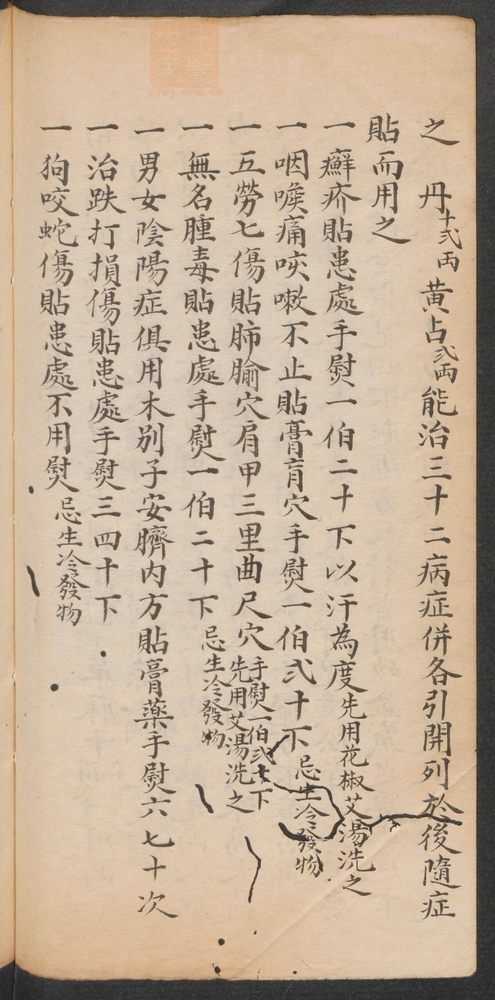 之丹十弍兩黃占弍兩能治三十二病症併各引開列於後隨症
貼而用之
一癬疥貼患處手熨一伯二十下以汗為度先用花椒艾湯洗之
一咽喉痛咳嗽不止貼膏肓穴手熨一伯弍十下忌生冷發物
一五勞七傷貼肺腧穴肩甲三里曲尺穴手熨一伯弍十下先用艾湯洗之
一無名腫毒貼患處手熨一伯二十下忌生冷發物
一男女陰陽症俱用木别子安臍内方貼膏藥手熨六七十次
一治跌打損傷貼患處手熨三四十下
一狗咬蛇傷貼患處不用熨忌生冷發物